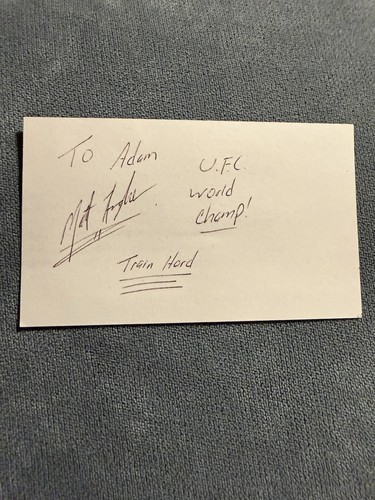 To Adam
U.F.C.
World
Champ!
Matt Hughes
Train Hard